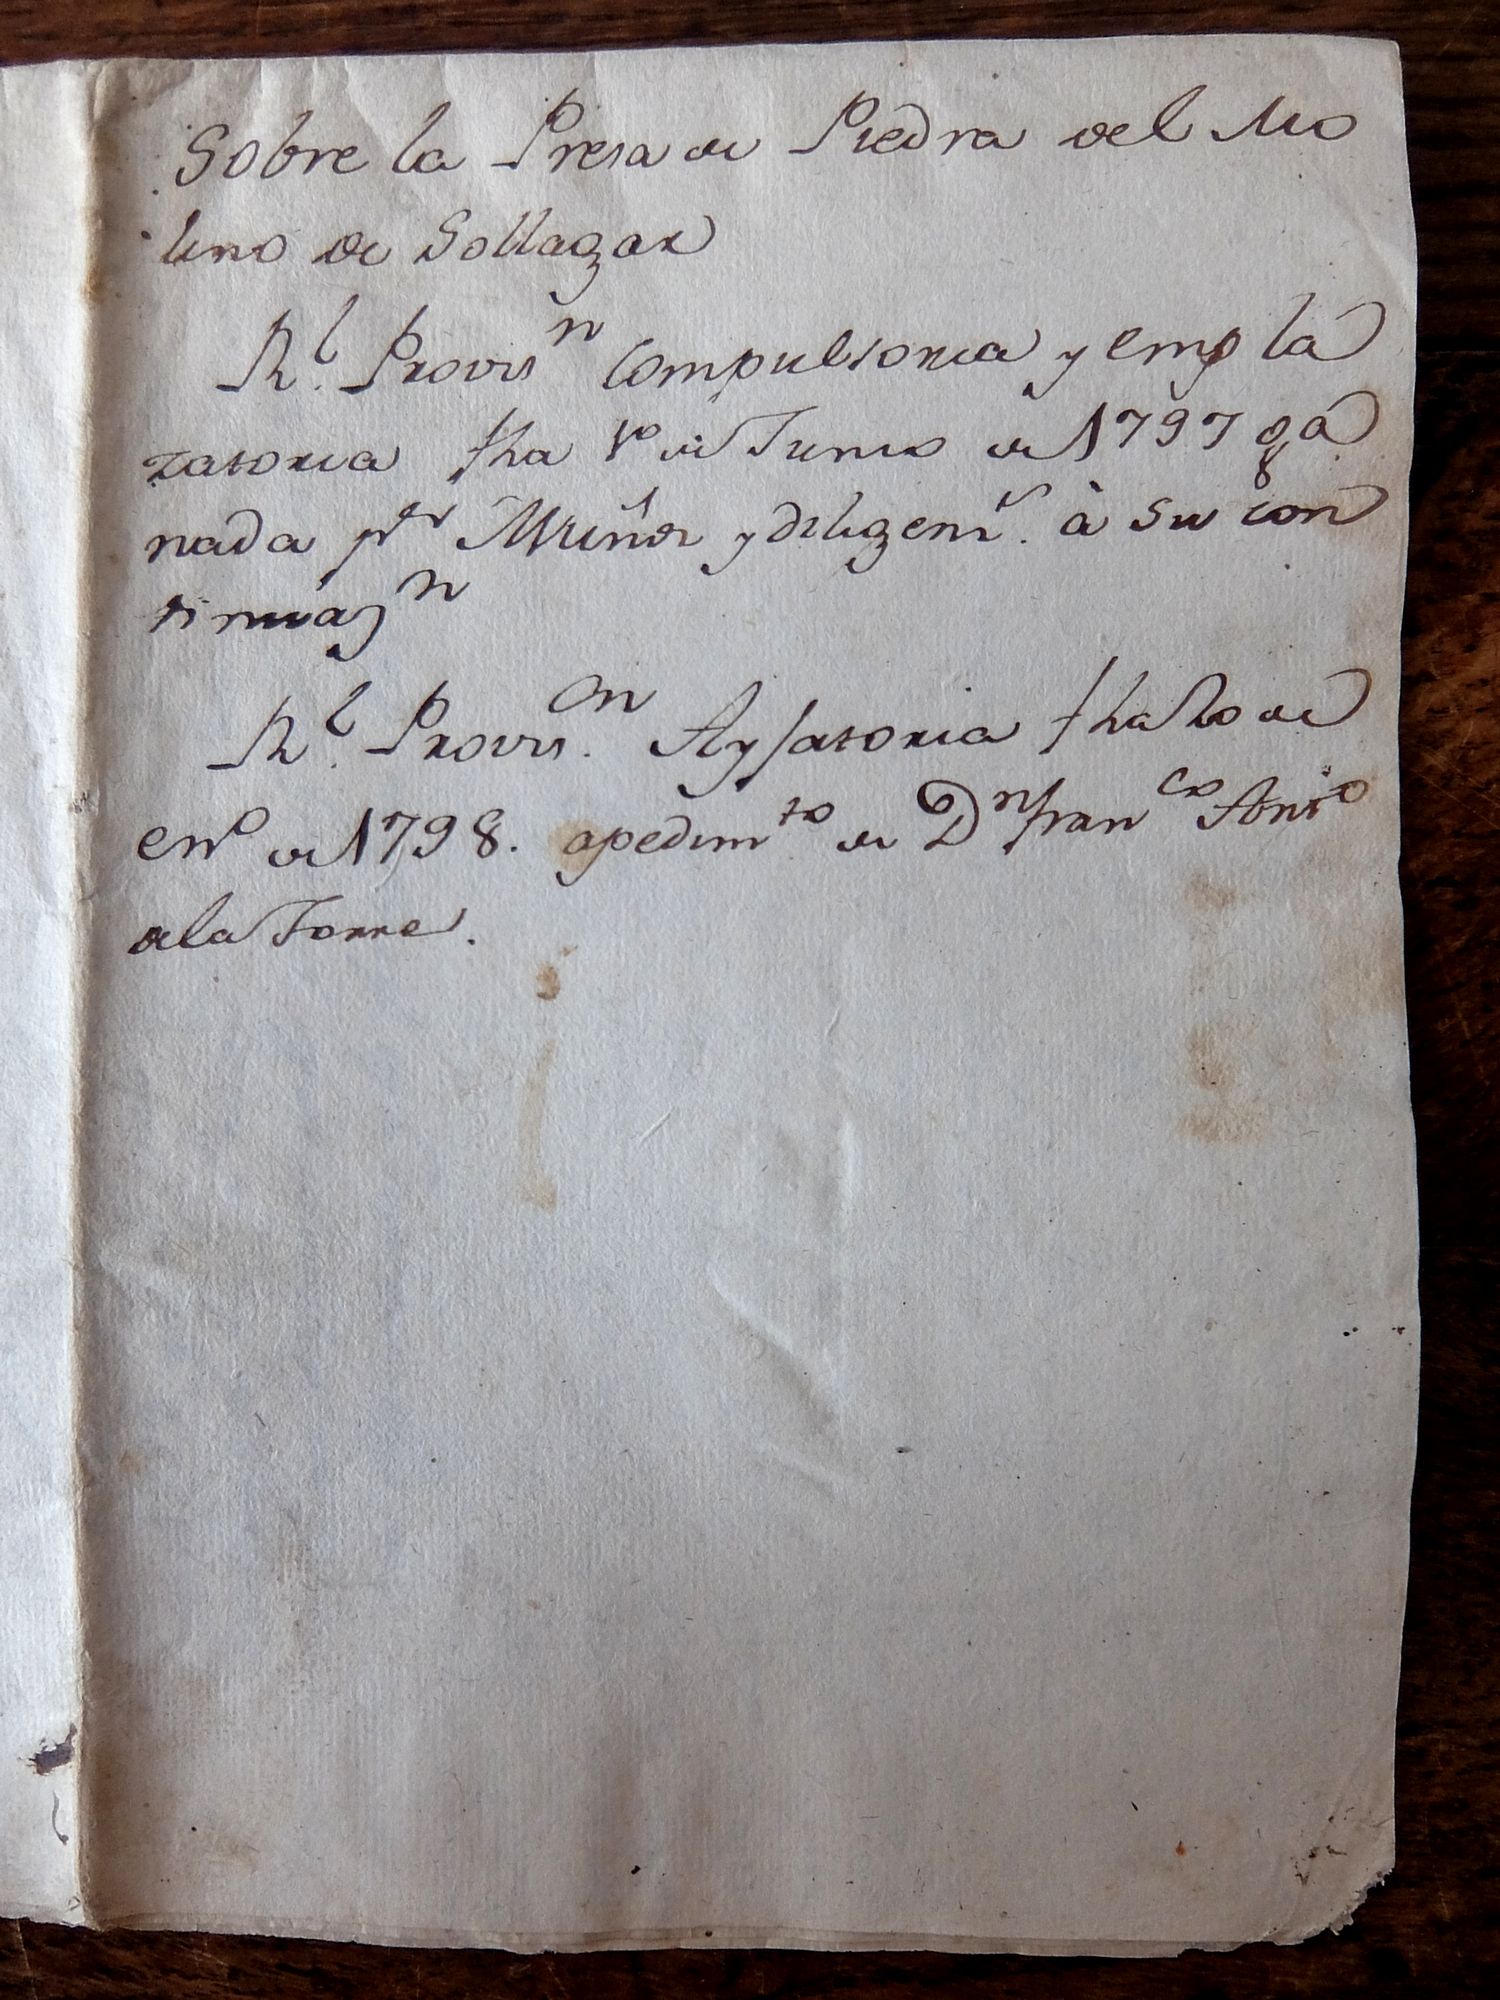 Sobre la Presa de Piedra del Mo
lino de Sollagar
Rl. Provisn Compulsoria y empla
zatoria fha 1o de Junio de 1797 ga
nada pr Muñoz y diligens. à su con
tinuazn
Rl. Provison. fha de
eno de 1798. apedimto de Dn franco Anto
dela Torre.